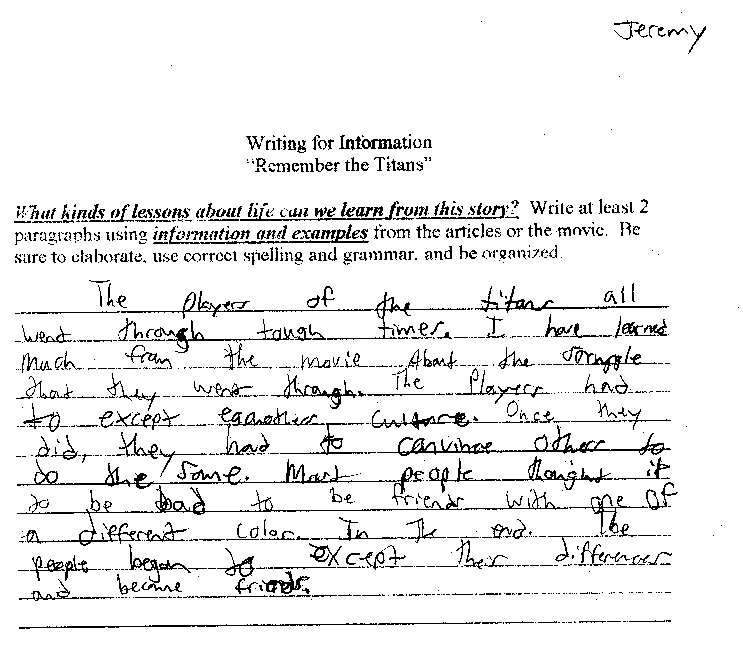 Jeremy
Writing for Information
"Remember the Titans"
What kinds of lessons about life can we learn from this story? Write at least 2
paragraphs using information and examples from the articles or the movie. Be
sure to elaborate, use correct spelling and grammar, and be organized.
The players of the titans all
went through tough times. I have learned
much from the movie About the struggle
that they went through. The Players had
to except eganother culture. Once they
did, they had to convince others to
do the same. Most people thought it
to be bad to be friends with one of
a different color. In The end. The
people began to except their differences
and became friends.